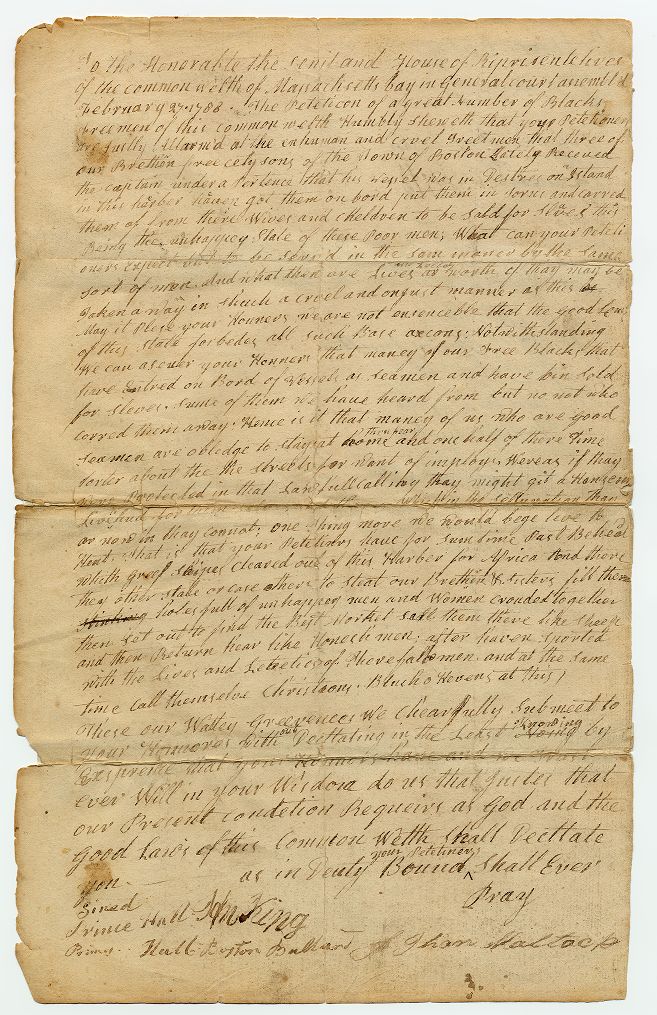 To the Honorable the Senit and House of Riprisentetives
of the common welth of Massachsetts bay in General court assembled
February 27 1788. The Petetion of a great Number of Blacks
freemen of this common welth Humbly sheweth that your Petetioners
are justly Allarmd at the enhuman and cruel Treetment that three of
our Brethren free citysons of the Town of Boston lately Receved
the captain under a Pertence that his vessel was in Destres on Island
in this harber haven got them on bord put them in iorns and carred
them of from there Wives and cheldren to be sold for slves this
Being the unhappey State of these Poor men; What can your Peteti
oners expect but to be served in the sam maner by the same
sort of men and what then are lives worth if thay may be
Taken a way in shuch a cruel and onjust manner as this
May it Plese your Honners we are not ensenceble that the good Lows
of this State forbedes all such Base axcons: Notwithstanding
We can aseuer your Honners that maney of our Free Blacks that
have Entred on Bord of vessels as seamen and have bin sold
for Sleves. sume of them we have heard from but no not who
carred them away. Hence is it that maney of us who are good
seamen are obledge to stay at home thru fear and one half of there time
lorter about the the streets for want of imploye; Wereas if thay
were Protected in that lawfull calling thay might git a Hansem
livehud for them
or now in thay cannot; one thing more we would bege leve to
Hent. That is that your Petetinrs have for sumtime Past Beheald
whith greaf ships cleared out of this Harber for Africa and there
they other stale or case others to steal our Brethren & sisters fill there
holes full of unhappey men and Women crouded together
then set out to find the Best Market sall them there like sheep
and then Return hear like Honesh men; after haven sported
with the Lives and Lebeties of there fallow men. and at the same
time call themselve Christions. Blush o Hevens at this;
These our Watey Greevences we cheerfully submeet to
your Honnores with out Decttating in the Least knowing by
Expreince that your Honners have and we trust
ever Will in your Wisdom do us that Justes that
our Present condetion Requeirs as God and the
Good Laws of this Common Welth shall Decttate
you. as in Deuty Bound your Peteners Shall Ever
Pray
Sined
Prince Hall Hn King
Primus Hall Boston Bullard
Mattock